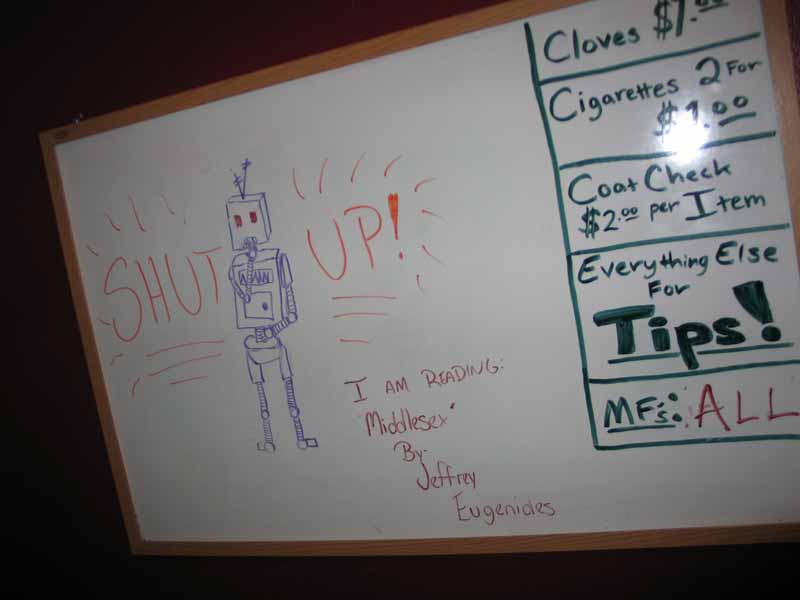 SHUT UP!
I AM READING:
"Middlesex"
By:
Jeffrey
Eugenides
Cloves $7.00
Cigarettes 2 For
$1.00
Coat Check
$2.00 per Item
Everything Else
For
Tips!
MFs: ALL